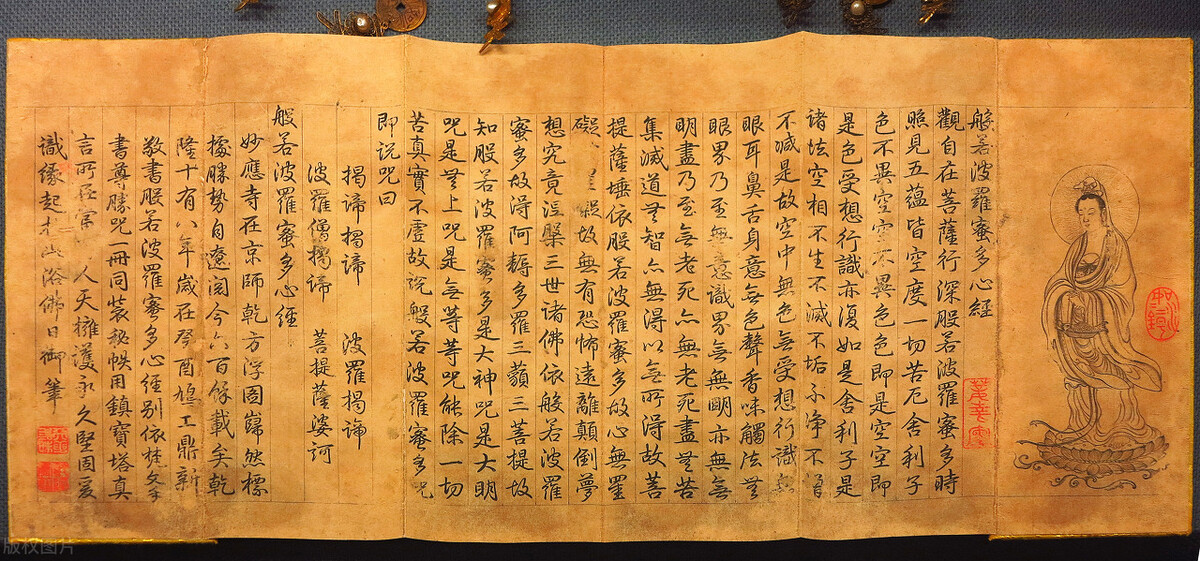 般若波羅蜜多心經
觀自在菩薩行深般若波羅蜜多時
照見五蘊皆空度一切苦厄舍利子
色不異空空不異色色即是空空即
是色受想行識亦復如是舍利子是
諸法空相不生不滅不垢不淨不
不減是故空中無色無受想行識無
眼耳鼻舌身意無色聲香味觸法無
眼界乃至無意識界無無明亦無無
明盡乃至無老死亦無老死盡無苦
集滅道無智亦無得以無所得故菩
提薩埵依般若波羅蜜多故心無罣
礙罣礙故無有恐怖遠離顛倒夢
想究竟涅槃三世諸佛依般若波羅
蜜多故得阿耨多羅三藐三菩提故
知般若波羅蜜多是大神咒是大明
咒是無上咒是無等等咒能除一切
苦真實不虛故說般若波羅蜜多咒
即說咒曰
揭諦揭諦 波羅揭諦
波羅僧揭諦 菩提薩婆訶
般若波羅蜜多心經
妙應寺在京師乾方浮圖巋然標
據勝勢自遼閱今六百餘載矣乾
隆十有八年歲在癸酉鳩工鼎新
敬書般若波羅蜜多心經別依梵文
書尊勝咒一冊同裝秘帙用鎮寶塔真
言所在當人天擁護永久堅固爰
識緣起於此浴佛日御筆
版权图片